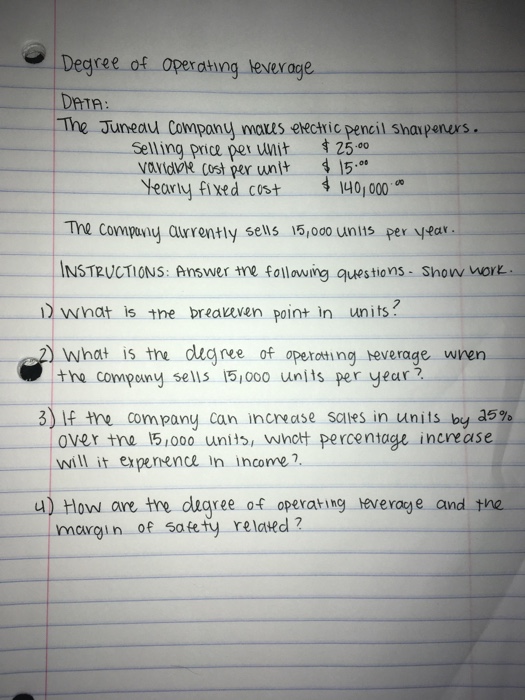 Degree of operating leverage
DATA:
The Juneau Company makes electric pencil sharpeners.
Selling price per unit $ 25.00
variable cost per unit $ 15.00
Yearly fixed cost $ 140,000.00
The company currently sells 15,000 units per year.
INSTRUCTIONS: Answer the following questions. Show work.
1) What is the breakeven point in units?
2) What is the degree of operating leverage when
the company sells 15,000 units per year?
3) If the company can increase sales in units by 25%
over the 15,000 units, what percentage increase
will it experience in income?
4) How are the degree of operating leverage and the
margin of safety related?